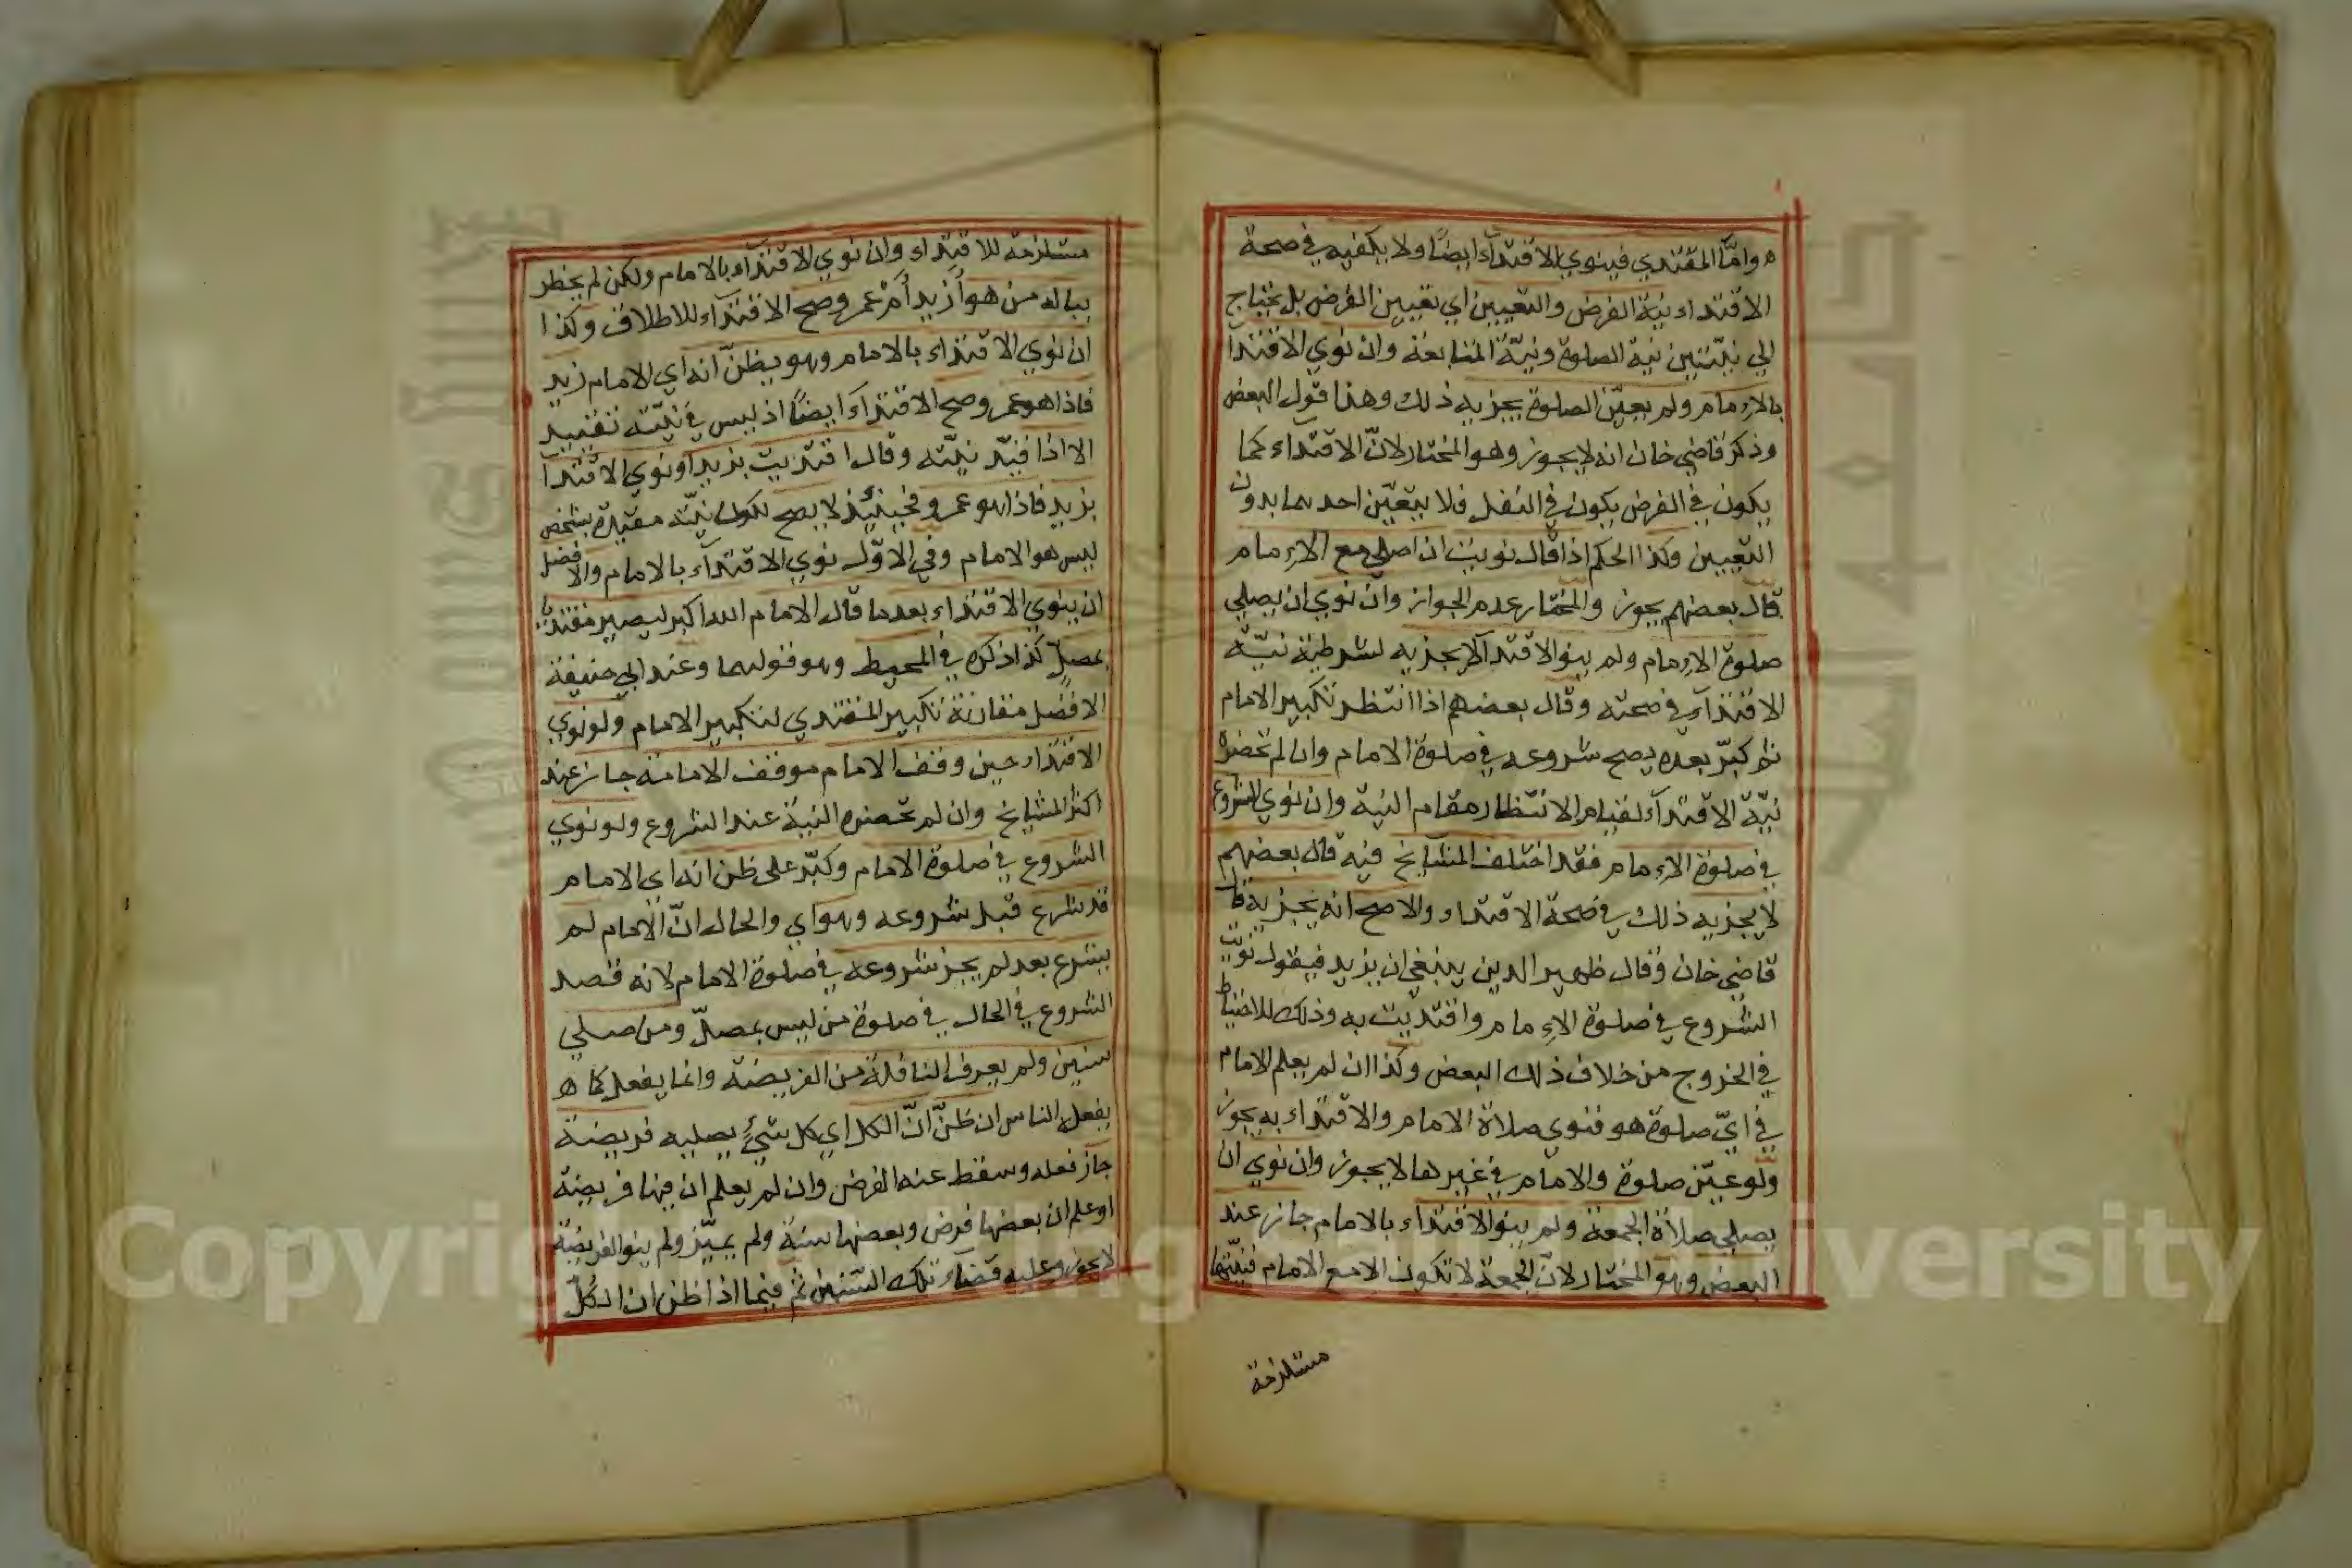 واما المقتدي فينوي الاقتدآء ايضًا ولا يكفيه في صحة
الاقتداء نية الفرض والتعيين اي تعيين الفرض بل يحتاج
الي نيّتين نية الصلوة ونيّة المتابعة وان نوي الاقتدآ
بالإمام ولم يعيّن الصلوة يجزيه ذلك وهذا قول البعض
وذكر قاضي خان انه لا يجوز وهو المختار لانّ الاقتداء كما
يكون في الفرض يكون في النفل فلا يتعيّن احدهما بدون
التعيين وكذا الحكم اذا قال نويت ان اصلي مع الإمام
قال بعضهم يجوز والمختار عدم الجواز وان نوي ان يصلي
صلوة الإمام ولم ينو الاقتدآ لا يجزيه لشرطية نيّة
الاقتدآء في صحته وقال بعضهم اذا انتظر تكبير الامام
ثم كبّر بعده يصح شروعه في صلوة الامام وان لم تحضره
نيّة الاقتدآء لقيام الانتظار مقام النية وان نوي الشروع
في صلوة الإمام فقد اختلف المشايخ فيه قال بعضهم
لا يجزيه ذلك في صحة الاقتداء والاصح انه يجزيه قا
قاضي خان وقال ظهير الدين ينبغي ان يزيد فيقول نويت
الشروع في صلوة الإمام واقتديت به وذلك للاحتياط
في الخروج من خلاف ذلك البعض وكذا ان لم يعلم الامام
في ايّ صلوة هو فنوي صلاة الامام والاقتداء به يجوز
ولو عيّن صلوة والامام في غيرها لا يجوز وان نوي ان
يصلي صلاة الجمعة ولم ينو الاقتداء بالامام جاز عند
البعض وهو المختار لانّ الجمعة لا تكون الا مع الامام فنيّتها
مستلزمة
مستلزمة للاقتداء وان نوي الاقتدآء بالامام ولكن لم يخطر
بباله من هو أزيد أم عمر وصح الاقتدآء للاطلاق وكذا
ان نوي الاقتداء بالامام وهو يظنّ انه اي الامام زيد
فاذا هو عمر وصح الاقتدآء ايضًا اذ ليس في نيّته تقييد
الا اذا قيّد نيّته وقال اقتديت بزيد او نوي الاقتدآ
بزيد فاذا هو عمر وفحينئذ لا يصح لكون نيّته مقيدة بشخص
ليس هو الامام وفي الاوّل نوي الاقتدآء بالامام والافضل
ان ينوي الاقتداء بعد ما قال الامام الله اكبر ليصير مقتديا
بمصلّ كذا ذكره في المحيط وهو قولهما وعند ابي حنيفة
الافضل مقارنة تكبير المقتدي لتكبير الامام ولو نوي
الاقتداء حين وقف الامام موقف الامامة جاز عند
اكثر المشايخ وان لم تحضره النية عند الشروع ولو نوي
الشروع في صلوة الامام وكبّر على ظن انه اي الامام
قد شرع قبل شروعه وهو اي والحال انّ الامام لم
يشرع بعد لم يجز شروعه في صلوة الامام لانه قصد
الشروع في الحال في صلوة من ليس بمصلّ ومن صلي
سنين ولم يعرف النافلة من الفريضة وانما يفعل كما ه
يفعل الناس ان ظنّ انّ الكل اي كل شيء يصليه فريضة
جاز فعله وسقط عنه الفرض وان لم يعلم ان فيها فريضة
او علم ان بعضها فرض وبعضها سنة ولم يميّز ولم ينو الفريضة
لا يجوز وعليه قضاء تلك السنين ثم فيما اذا ظن ان الكلّ